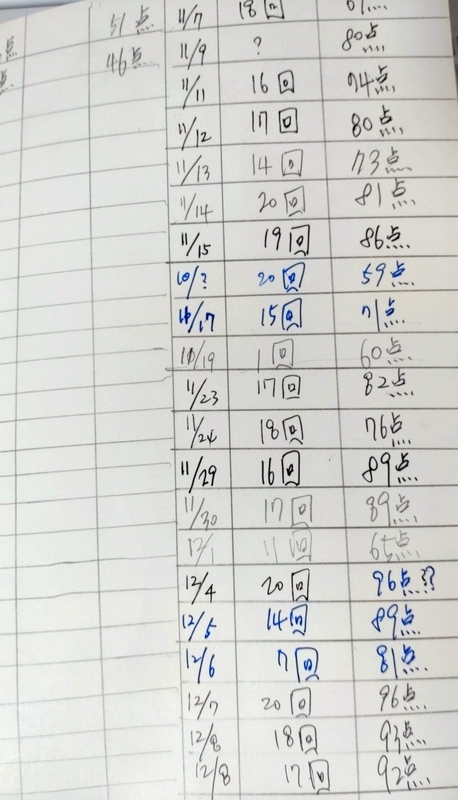 51点
46点
11/7 18回
11/9 ? 80点
11/11 16回 74点
11/12 17回 80点
11/13 14回 73点
11/14 20回 81点
11/15 19回 86点
10/? 20回 59点
15回 71点
1回 60点
11/23 17回 82点
11/24 18回 76点
11/29 16回 89点
11/30 17回 89点
12/1 11回 65点
12/4 20回 96点??
12/5 14回 89点
12/6 7回 81点
12/7 20回 96点
12/8 18回 93点
12/8 17回 92点